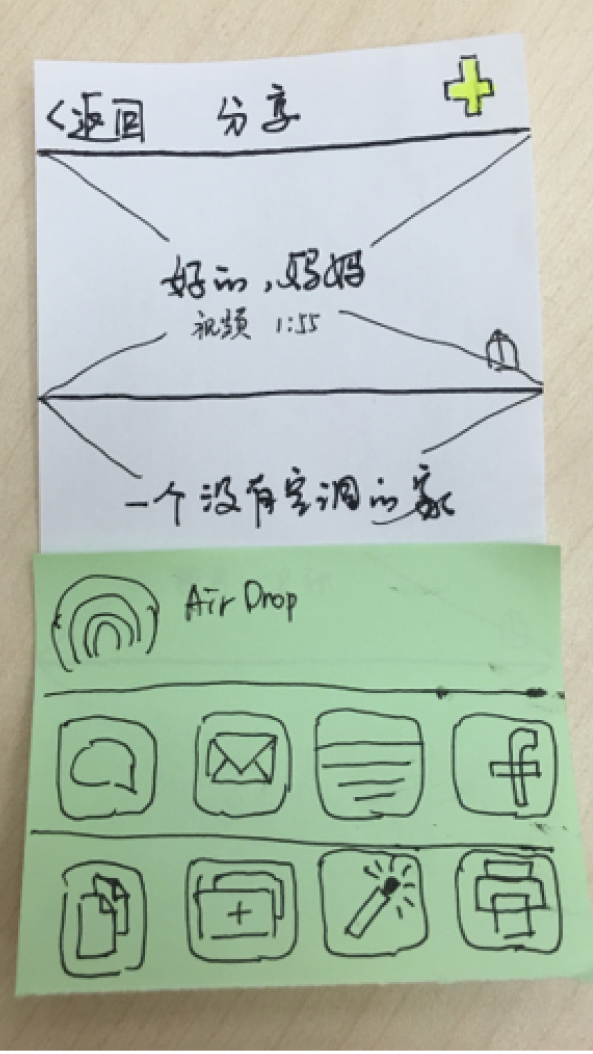 <返回 分享
好的,妈妈
视频 1:55
一个没有空调的家
AirDrop